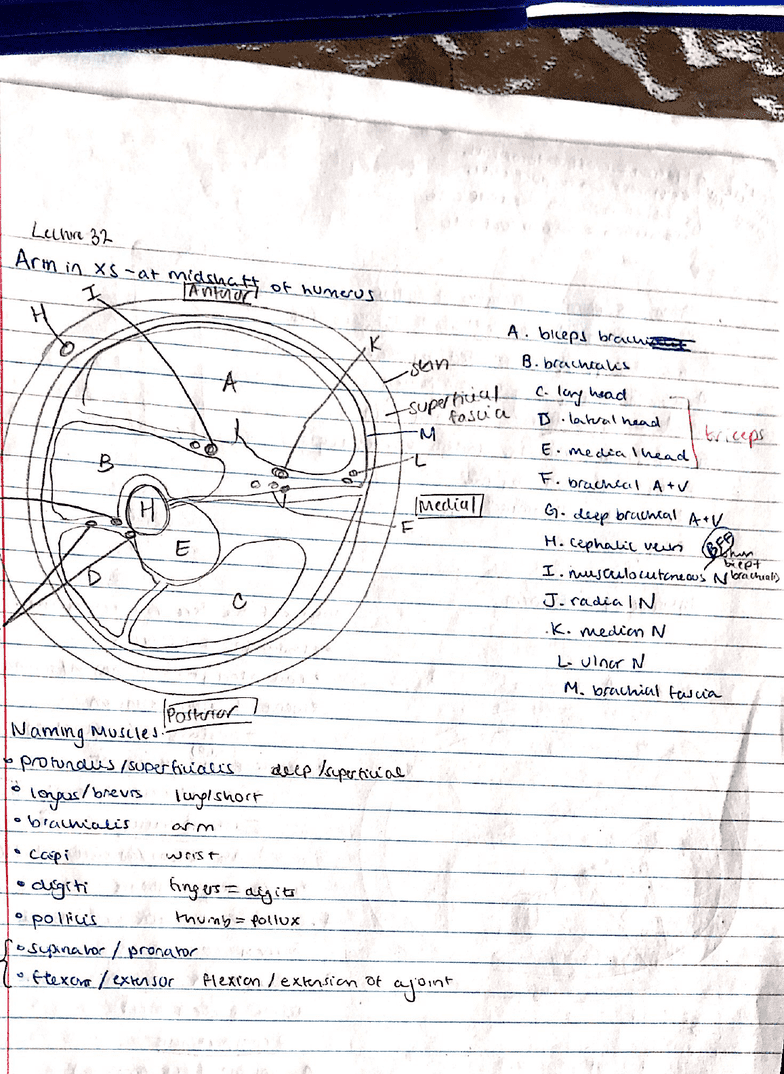 Lecture 32
Arm in XS - at midshaft of humerus
Anterior
I
H
K
A
skin
superficial
fascia
M
L
B
H
Medial
F
E
D
C
Posterior
A. biceps brachii
B. brachialis
C. long head
D. lateral head
E. medial head
triceps
F. brachial A+V
G. deep brachial A+V
H. cephalic vein
BFF
bicept
brachialis
I. musculocutaneous N
J. radial N
K. median N
L. ulnar N
M. brachial fascia
Naming Muscles:
• profundus/superficialis deep/superficial
• longus/brevis long/short
• brachialis arm
• capi wrist
• digiti fingers = digits
• policis thumb = pollux
• supinator / pronator
• flexor / extensor flexion / extension of a joint